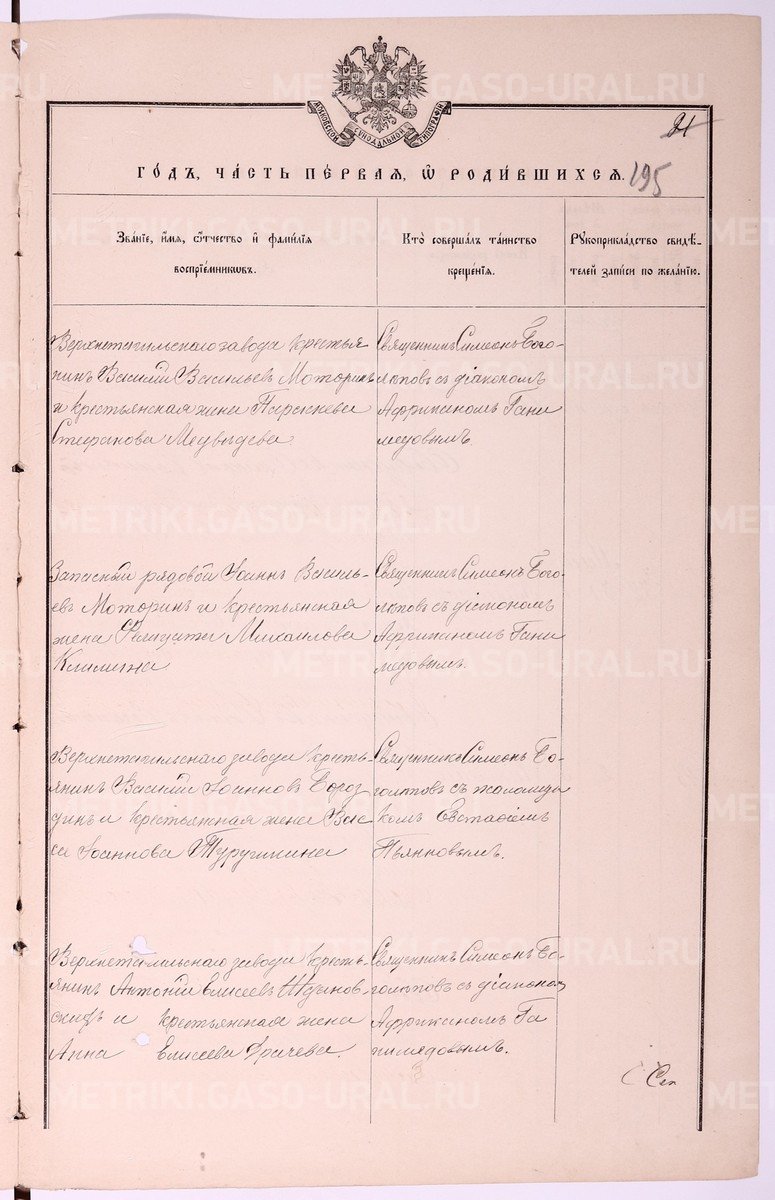 METRIKI.GASO-URAL.RU
МОСКОВСКОЙ СѴНОДАЛЬНОЙ ТИПОГРАФІИ
21
ГО́ДЪ, ЧА́СТЬ ПЕ́РВАЯ, Ѽ РОДИ́ВШИХСЯ.
195
Зва́нїе, и҆́мя, ѻ҆́тчество и҆ фами́лїя
воспрїе́мникѡвъ.
Кто̀ соверша́лъ та́инство
креще́нїя.
Рꙋкоприкла́дство свидѣ́-
телей за́писи по жела́нїю.
Верхнетагильскаго завода крестья
нинъ Василій Васильевъ Моторинъ
и крестьянская жена Параскева
Стефанова Медвѣдева
Священникъ Симеонъ Бого-
лѣповъ съ діакономъ
Африканомъ Гани
медовымъ
Запасный рядовой Іоаннъ Василь-
евъ Моторинъ и крестьянская
жена Фелицата Михаилова
Климина
Священникъ Симеонъ Бого-
лѣповъ съ діакономъ
Африканомъ Гани
медовымъ.
Верхнетагильскаго завода кресть-
янинъ Василій Іоанновъ Бороз
динъ и крестьянская жена Вас
са Іоаннова Туругикина
Священникъ Симеонъ Бо-
голѣповъ съ псаломщи
комъ Евстафіемъ
Пьянковымъ.
Верхнетагильскаго завода кресть-
янинъ Антоній Елисеевъ
и крестьянская жена
Анна Елисеева Грачева.
Священникъ Симеонъ Бо-
голѣповъ съ діаконом
Африканомъ Га
нимедовымъ.